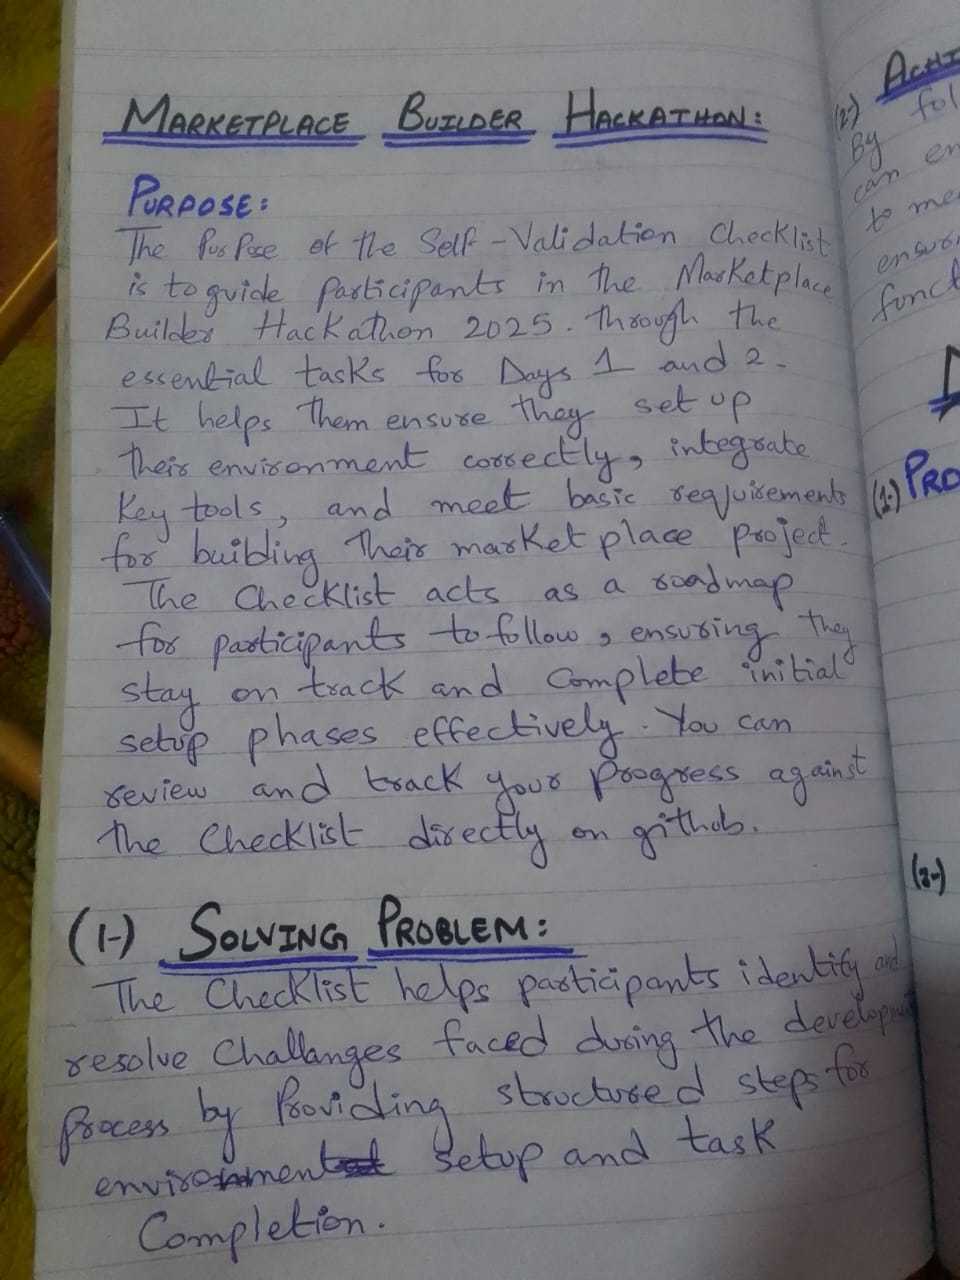 MARKETPLACE BUILDER HACKATHON:
PURPOSE:
The Purpose of the Self-Validation Checklist
is to guide participants in the Marketplace
Builder Hackathon 2025. through the
essential tasks for Days 1 and 2.
It helps them ensure they set up
their environment correctly, integrate
Key tools, and meet basic requirements
for building their market place project.
The Checklist acts as a roadmap
for participants to follow, ensuring they
stay on track and Complete initial
setup phases effectively. You can
review and track your Progress against
the Checklist directly on github.
(1-) SOLVING PROBLEM:
The Checklist helps participants identify and
resolve Challanges faced during the development
Process by Providing structured steps for
environment Setup and task
Completion.
(2-) ACHI
By fol
can en
to me
ensur
funct
(1-) PRO
(2-)